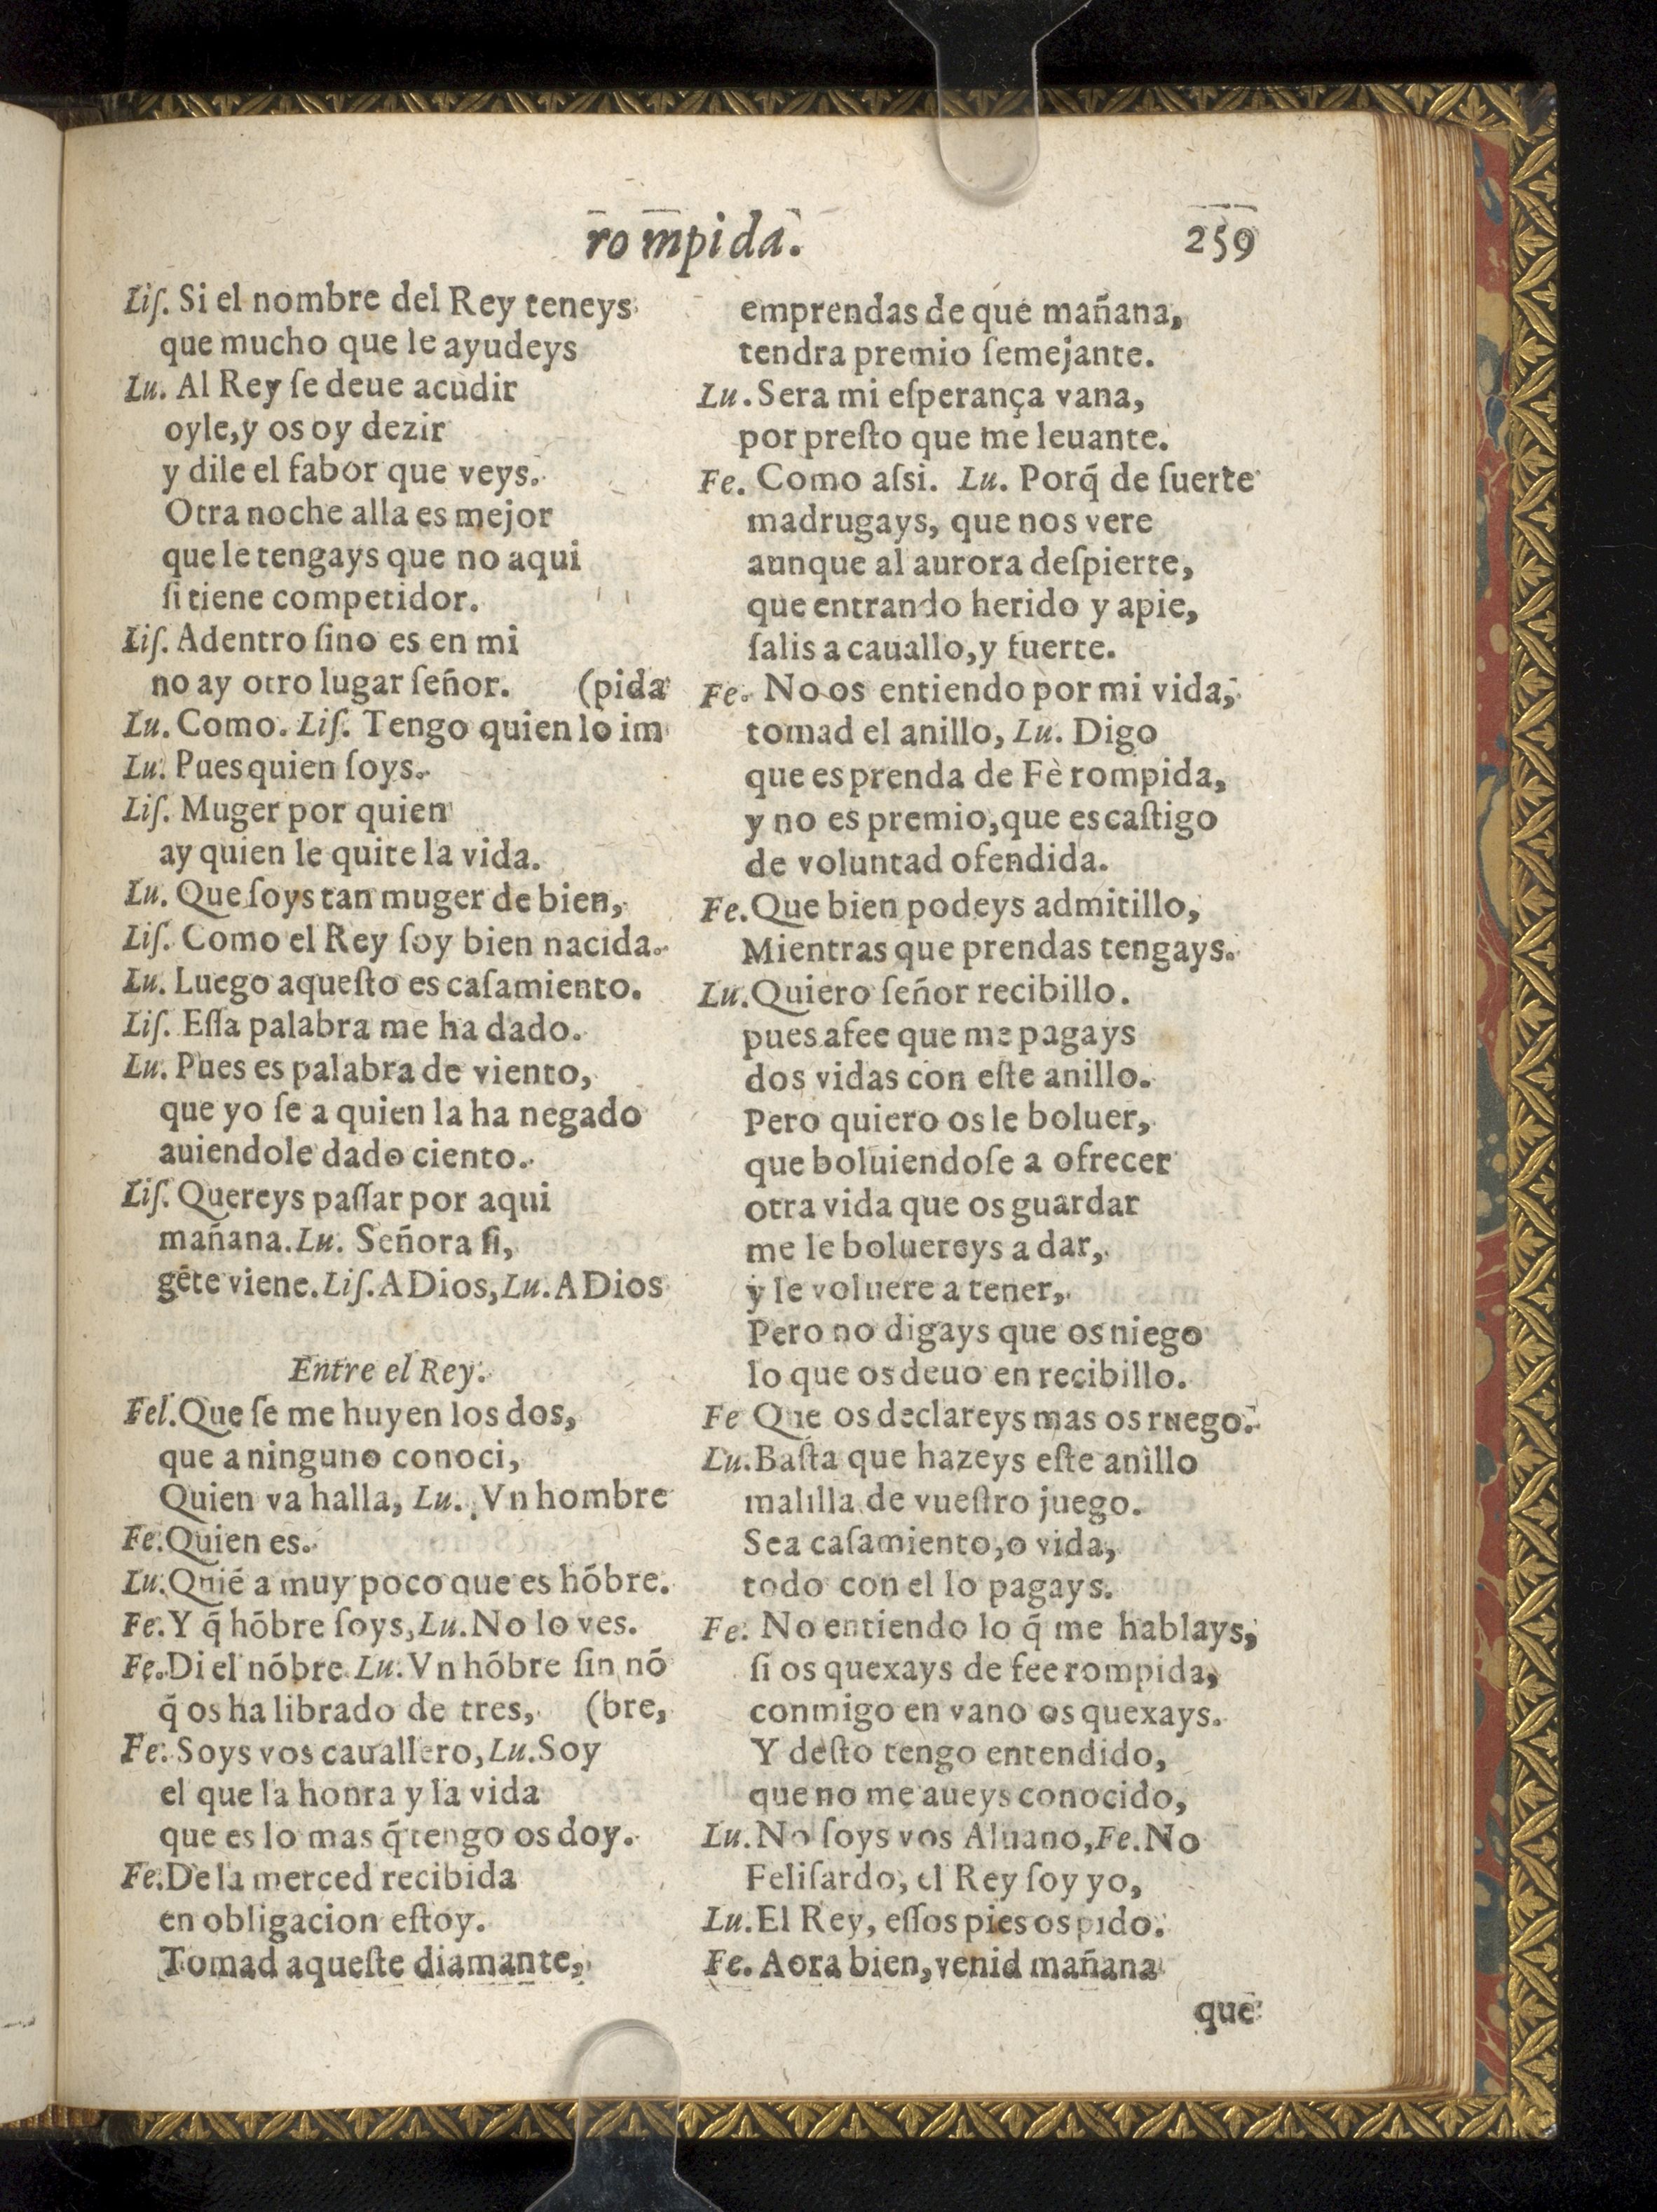 rompida.
259
Liſ. Si el nombre del Rey teneys
que mucho que le ayudeys
Lu. Al Rey ſe deue acudir
oyle,y os oy dezir
y dile el fabor que veys.
Otra noche alla es mejor
que le tengays que no aqui
ſi tiene competidor.
Liſ. Adentro ſino es en mi
no ay otro lugar ſeñor. (pida
Lu. Como. Liſ. Tengo quien lo im
Lu. Pues quien ſoys.
Liſ. Muger por quien
ay quien le quite la vida.
Lu. Que ſoys tan muger de bien,
Liſ. Como el Rey ſoy bien nacida.
Lu. Luego aqueſto es caſamiento.
Liſ. Eſſa palabra me ha dado.
Lu. Pues es palabra de viento,
que yo ſe a quien la ha negado
auiendole dado ciento.
Liſ. Quereys paſſar por aqui
mañana. Lu. Señora ſi,
gēte viene. Liſ. A Dios, Lu. A Dios
Entre el Rey.
Fel. Que ſe me huyen los dos,
que a ninguno conoci,
Quien va halla, Lu. Vn hombre
Fe. Quien es.
Lu. Quiē a muy poco que es hōbre.
Fe. Y q̄ hōbre ſoys, Lu. No lo ves.
Fe. Di el nōbre Lu. Vn hōbre ſin nō
q̄ os ha librado de tres, (bre,
Fe. Soys vos cauallero, Lu. Soy
el que la honra y la vida
que es lo mas q̄ tengo os doy.
Fe. De la merced recibida
en obligacion eſtoy.
Tomad aqueſte diamante,
emprendas de que mañana,
tendra premio ſemejante.
Lu. Sera mi eſperança vana,
por preſto que me leuante.
Fe. Como aſsi. Lu. Porq̄ de ſuerte
madrugays, que nos vere
aunque al aurora deſpierte,
que entrando herido y apie,
ſalis a cauallo,y fuerte.
Fe. No os entiendo por mi vida,
tomad el anillo, Lu. Digo
que es prenda de Fè rompida,
y no es premio,que es caſtigo
de voluntad ofendida.
Fe. Que bien podeys admitillo,
Mientras que prendas tengays.
Lu. Quiero ſeñor recibillo.
pues afee que me pagays
dos vidas con eſte anillo.
Pero quiero os le boluer,
que boluiendoſe a ofrecer
otra vida que os guardar
me le boluereys a dar,
y le voluere a tener,
Pero no digays que os niego
lo que os deuo en recibillo.
Fe Que os declareys mas os ruego.
Lu. Baſta que hazeys eſte anillo
malilla de vueſtro juego.
Sea caſamiento,o vida,
todo con el lo pagays.
Fe. No entiendo lo q̄ me hablays,
ſi os quexays de fee rompida,
conmigo en vano os quexays.
Y deſto tengo entendido,
que no me aueys conocido,
Lu. No ſoys vos Aluano, Fe. No
Feliſardo, el Rey ſoy yo,
Lu. El Rey, eſſos pies os pido.
Fe. Aora bien, venid mañana
que